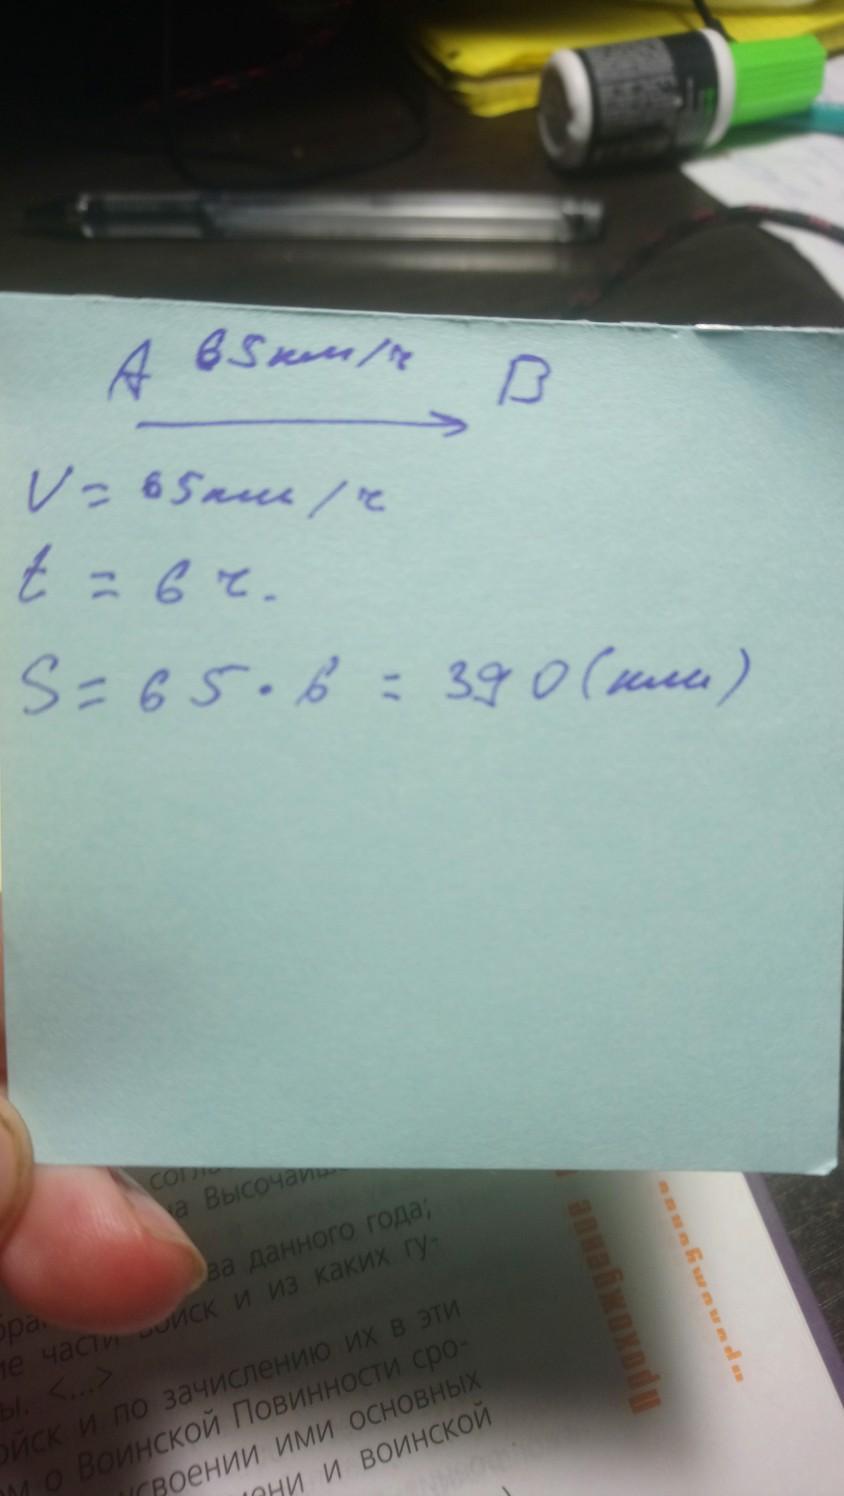 A 65км/ч B
V = 65км/ч
t = 6 ч.
S = 65 · 6 = 390 (км)
на Высочайше
ва данного года;
ие части войск и из каких гу-
ы. <...>
ойск и по зачислению их в эти
ом о Воинской Повинности сро-
усвоении ими основных
мени и воинской